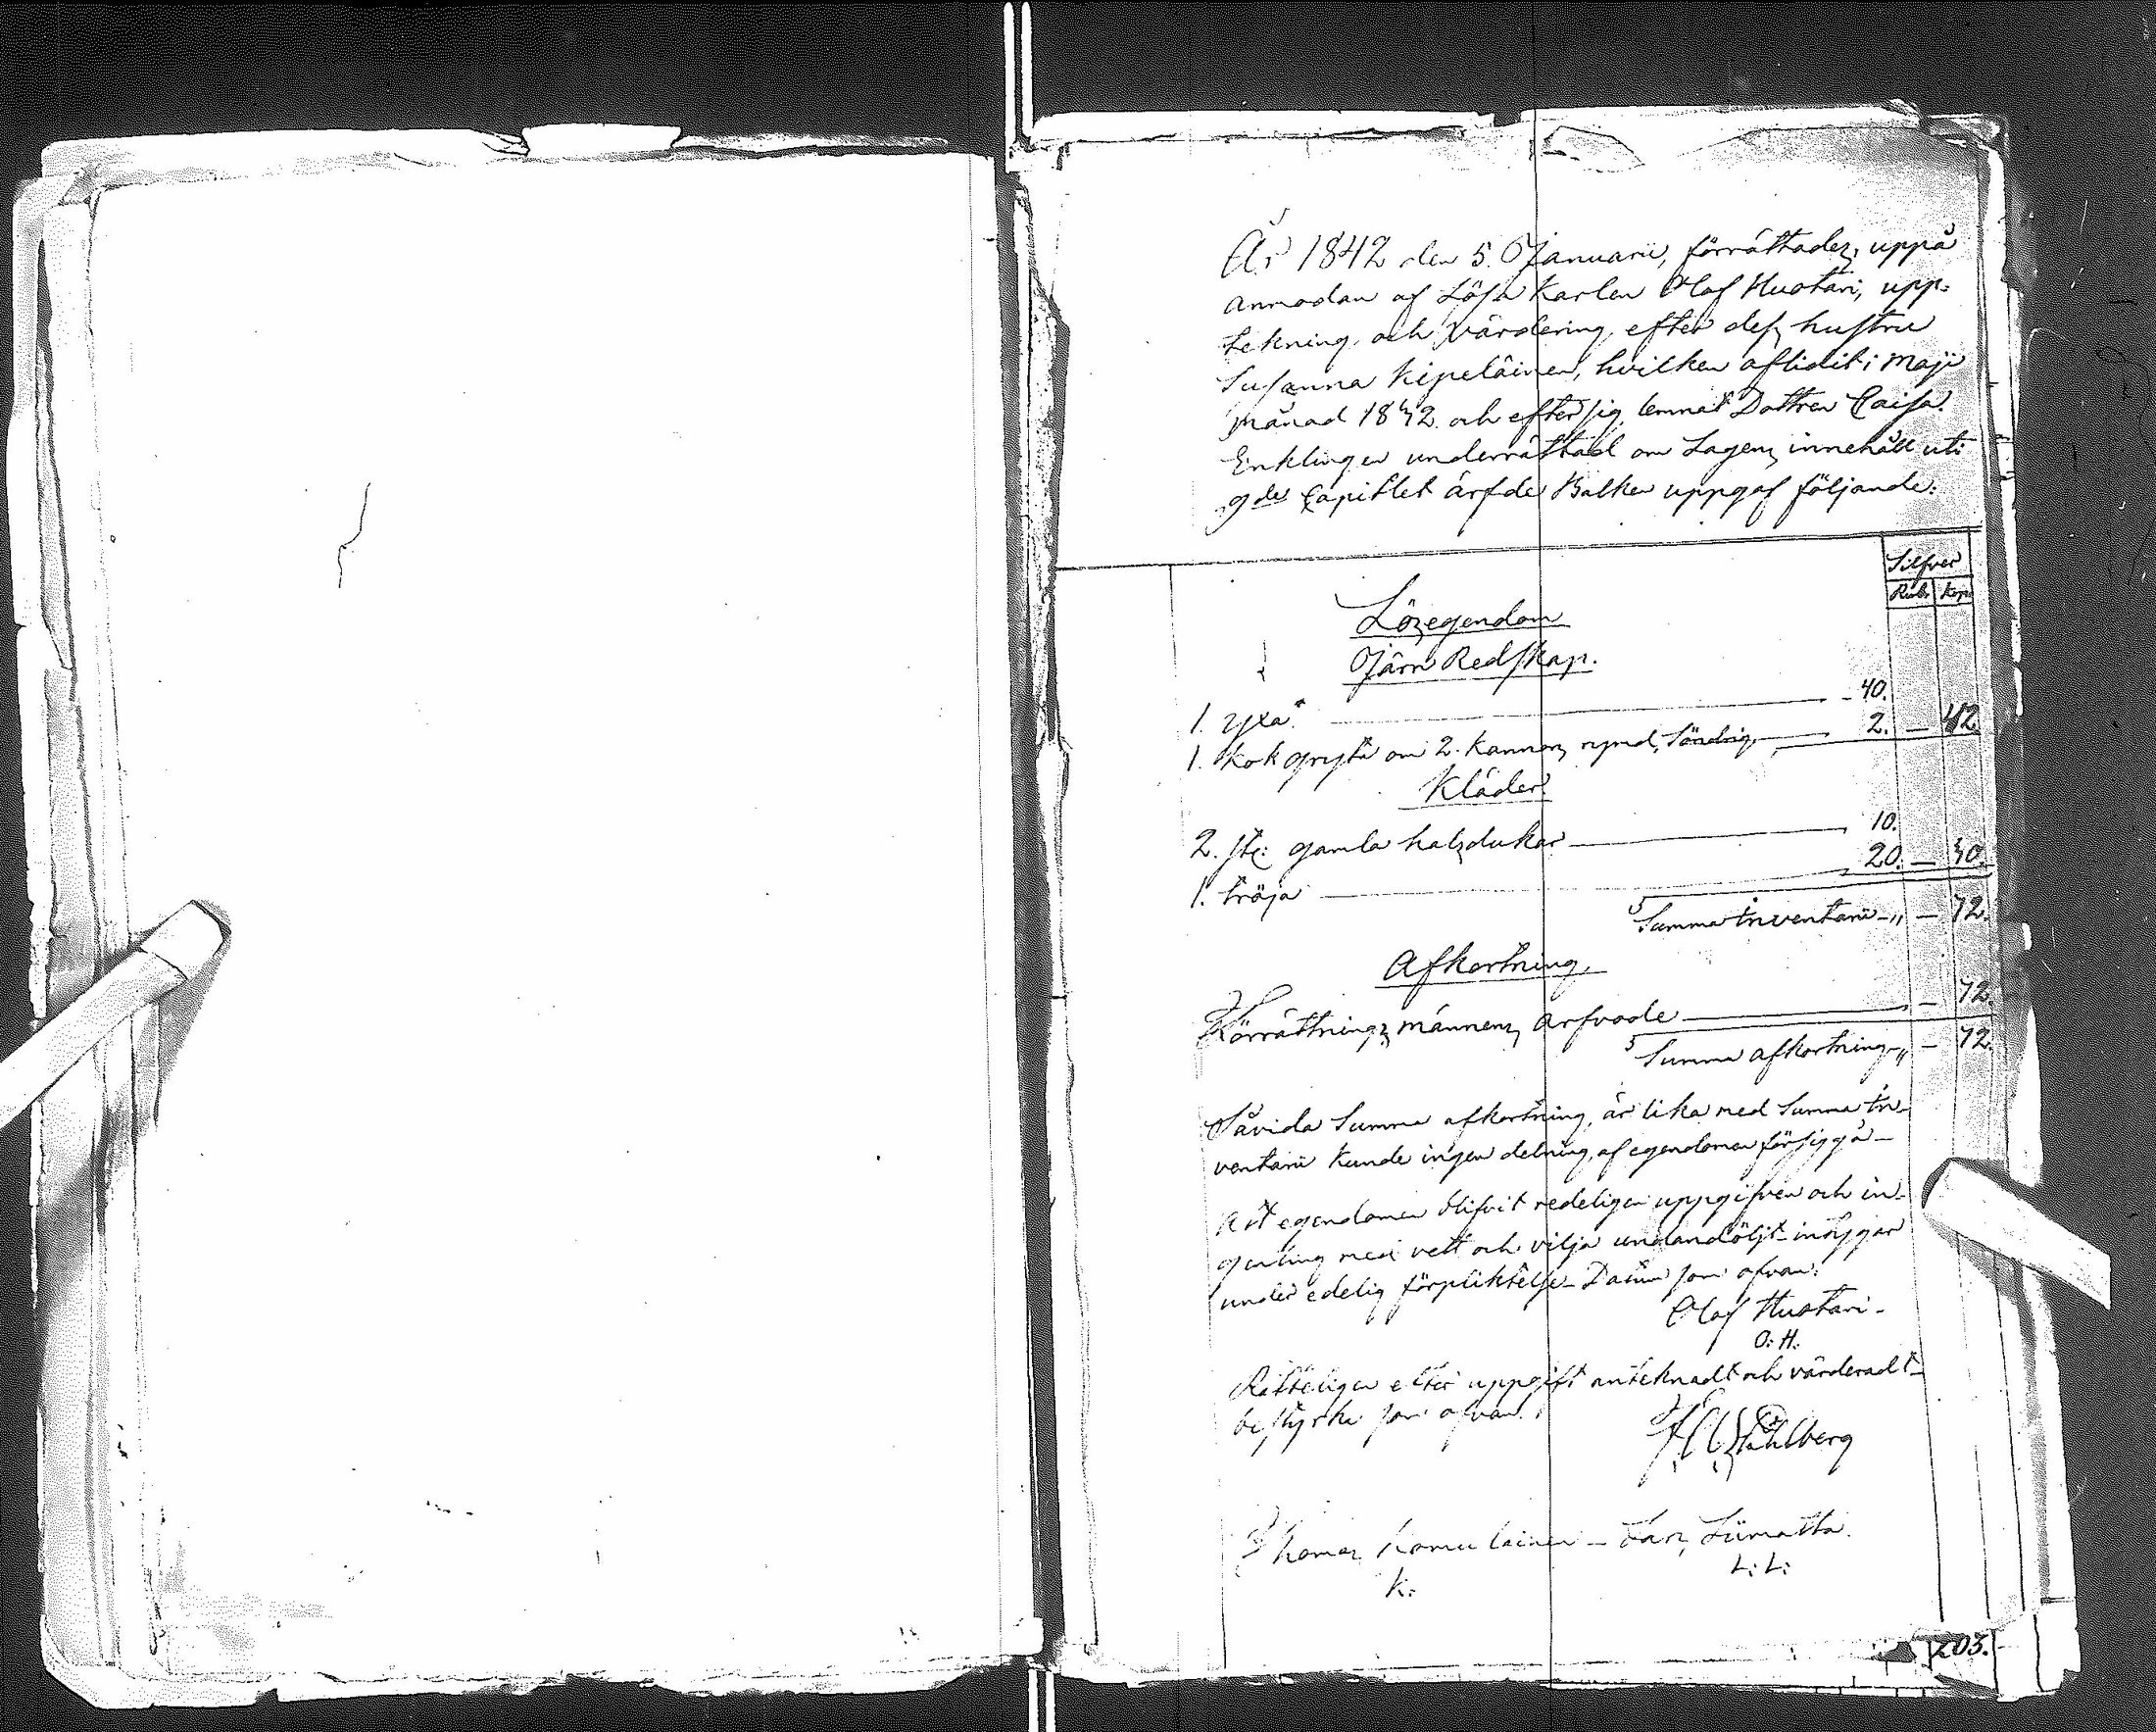 År 1842 den 5. Januarii, förrättades, uppå
anmodan af Lösa Karlen Olof Huotari, upp-
tekning och Värdering, efter dess hustru
Susanna Kipeläinen, hvilken aflidit i Maji
månad 1842. och efter sig lemnat Dottren Caisa.
Enklingen underrättad om Lagens innehåll uti
9de Capitlet ärfde Balken uppgaf följande:
Silfver
Rub. Kop.
Lösegendom
Järn Redskap.
1. yxa. — 40.
1. Kok gryta om 2. Kannors rymd, Söndrig, — 2. — 42
Kläder
2. st: gamla halsdukar — 10.
1. tröja — 20. — 30.
Summa Inventarii „ — 72.
Afkortning.
Förrättnings männens Arfvode — „ — 72.
Summa afkortning „ — 72.
Såvida Summa afkortning, är lika med Summa In-
ventarii kunde ingen delning, af egendomen försiggå —
Att egendomen blifvit redeligen uppgifven och in-
genting med vett och vilja undandöljt intygar
under edelig förpliktelse. Datum som ofvan.
Olof Huotari.
O: H.
Rätteligen efter uppgift anteknadt och värderadt
bestyrka som ofvan.
Ståhlberg
Thomas Komulainen — Lars Liimatta.
K: L: L:
203.